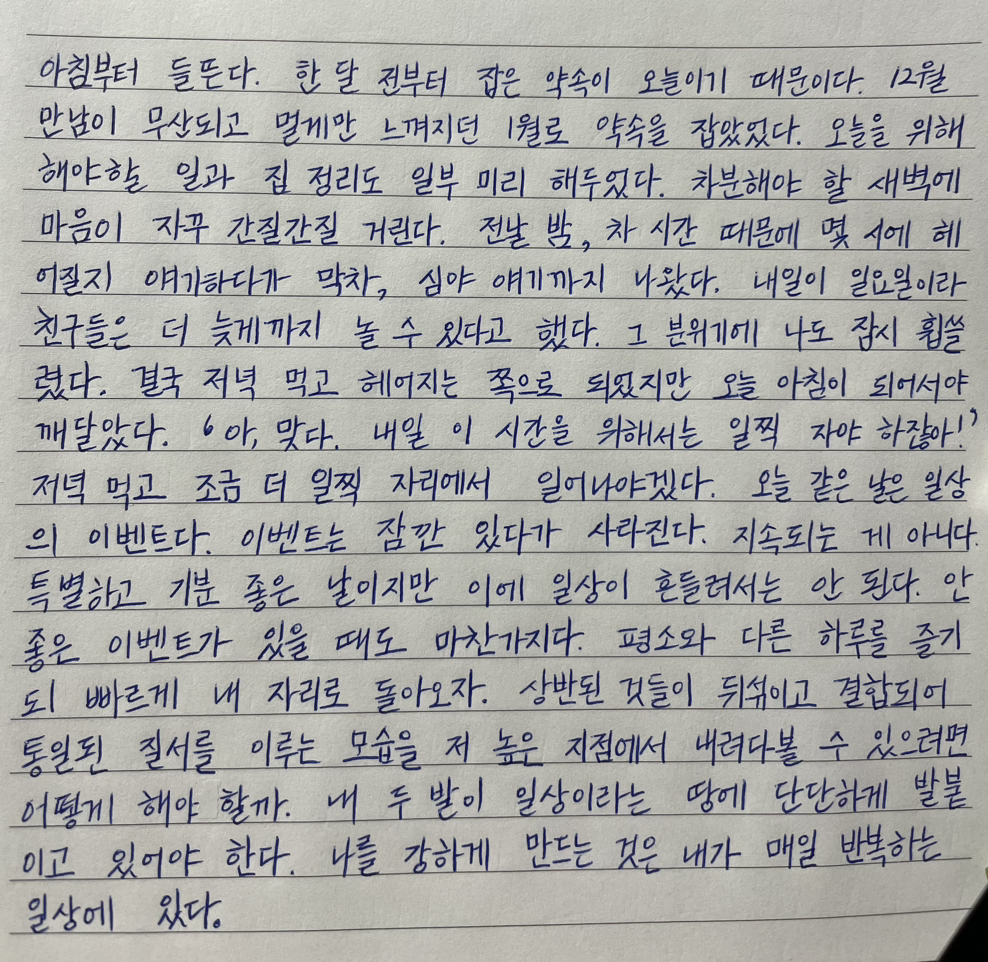 아침부터 들뜬다. 한 달 전부터 잡은 약속이 오늘이기 때문이다. 12월
만남이 무산되고 멀게만 느껴지던 1월로 약속을 잡았었다. 오늘을 위해
해야할 일과 집 정리도 일부 미리 해두었다. 차분해야 할 새벽에
마음이 자꾸 간질간질 거린다. 전날 밤, 차 시간 때문에 몇 시에 헤
어질지 얘기하다가 막차, 심야 얘기까지 나왔다. 내일이 일요일이라
친구들은 더 늦게까지 놀 수 있다고 했다. 그 분위기에 나도 잠시 휩쓸
렸다. 결국 저녁 먹고 헤어지는 쪽으로 되었지만 오늘 아침이 되어서야
깨달았다. '아, 맞다. 내일 이 시간을 위해서는 일찍 자야 하잖아!'
저녁 먹고 조금 더 일찍 자리에서 일어나야겠다. 오늘 같은 날은 일상
의 이벤트다. 이벤트는 잠깐 있다가 사라진다. 지속되는 게 아니다.
특별하고 기분 좋은 날이지만 이에 일상이 흔들려서는 안 된다. 안
좋은 이벤트가 있을 때도 마찬가지다. 평소와 다른 하루를 즐기
되 빠르게 내 자리로 돌아오자. 상반된 것들이 뒤섞이고 결합되어
통일된 질서를 이루는 모습을 저 높은 지점에서 내려다볼 수 있으려면
어떻게 해야 할까. 내 두 발이 일상이라는 땅에 단단하게 발붙
이고 있어야 한다. 나를 강하게 만드는 것은 내가 매일 반복하는
일상에 있다.